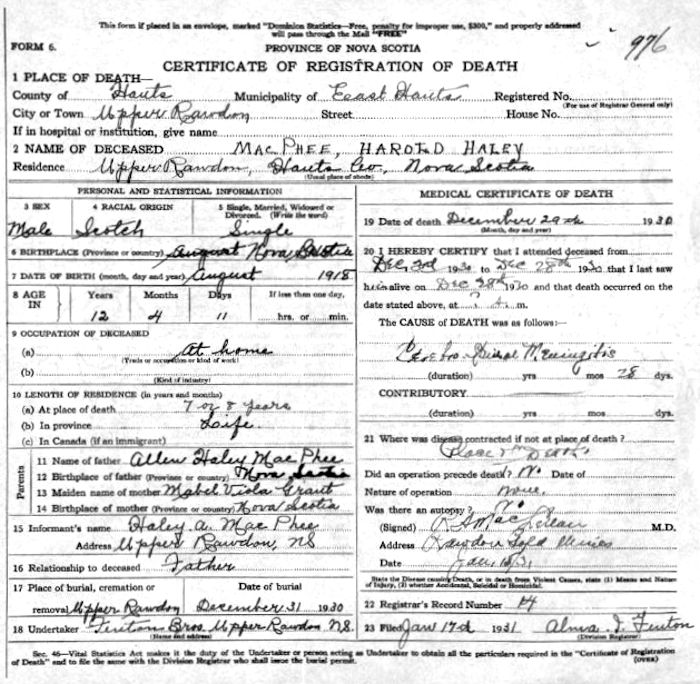 This form if placed in an envelope, marked "Dominion Statistics—Free, penalty for improper use, $300," and properly addressed
will pass through the Mail "FREE"
976
FORM 6.
PROVINCE OF NOVA SCOTIA
CERTIFICATE OF REGISTRATION OF DEATH
1 PLACE OF DEATH—
County of Hants Municipality of East Hants Registered No.
(For use of Registrar General only)
City or Town Upper Rawdon Street House No.
If in hospital or institution, give name
2 NAME OF DECEASED MACPHEE, HAROLD HALEY
Residence Upper Rawdon, Hants Co, Nova Scotia
(Usual place of abode)
PERSONAL AND STATISTICAL INFORMATION
3 SEX 4 RACIAL ORIGIN 5 Single, Married, Widowed or
Divorced. (Write the word)
Male Scotch Single
6 BIRTHPLACE (Province or country) August Nova Scotia
7 DATE OF BIRTH (month, day and year) August 1918
8 AGE IN Years Months Days If less than one day,
12 4 11 hrs. or min.
9 OCCUPATION OF DECEASED
(a) At home
(Trade or occupation or kind of work)
(b)
(Kind of industry)
10 LENGTH OF RESIDENCE (in years and months)
(a) At place of death 7 or 8 years
(b) In province Life
(c) In Canada (if an immigrant)
Parents
11 Name of father Allen Haley MacPhee
12 Birthplace of father (Province or country) Nova Scotia
13 Maiden name of mother Mabel Viola Grant
14 Birthplace of mother (Province or country) Nova Scotia
15 Informant's name Haley A. MacPhee
Address Upper Rawdon, NS
16 Relationship to deceased Father
17 Place of burial, cremation or Date of burial
removal Upper Rawdon December 31 1930
18 Undertaker Fenton Bros. Upper Rawdon N.S.
(Name and address)
MEDICAL CERTIFICATE OF DEATH
19 Date of death December 29th 1930
(Month, day and year)
20 I HEREBY CERTIFY that I attended deceased from
Dec 3rd 1930 to Dec 28th 1930 that I last saw
him alive on Dec 28th 1930 and that death occurred on the
date stated above, at ? A. m.
The CAUSE OF DEATH was as follows:—
Cerebro-Spinal Meningitis
(duration) yrs mos 28 dys.
CONTRIBUTORY
(duration) yrs. mos dys.
21 Where was disease contracted if not at place of death?
Place of Death
Did an operation precede death? No Date of
Nature of operation none.
Was there an autopsy? No
(Signed) MacLellan M.D.
Address Rawdon Gold Mines
Date
State the Disease causing Death, or in death from Violent Causes, state (1) Means and Nature
of Injury, (2) whether Accidental, Suicidal or Homicidal.
22 Registrar's Record Number 14
23 Filed Jan 17th 1931 Alma J. Fenton
(Division Registrar)
Sec. 46—Vital Statistics Act makes it the duty of the Undertaker or person acting as Undertaker to obtain all the particulars required in the "Certificate of Registration
of Death" and to file the same with the Division Registrar who shall issue the burial permit. (OVER)